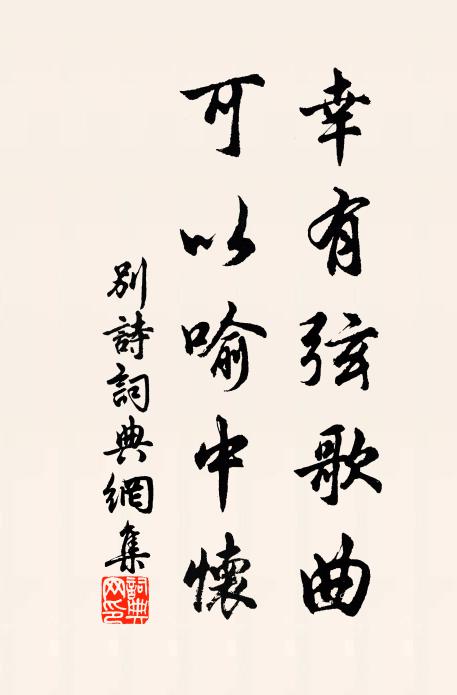 幸有弦歌曲
可以喻中懷
別詩詞典網集
詞典網印